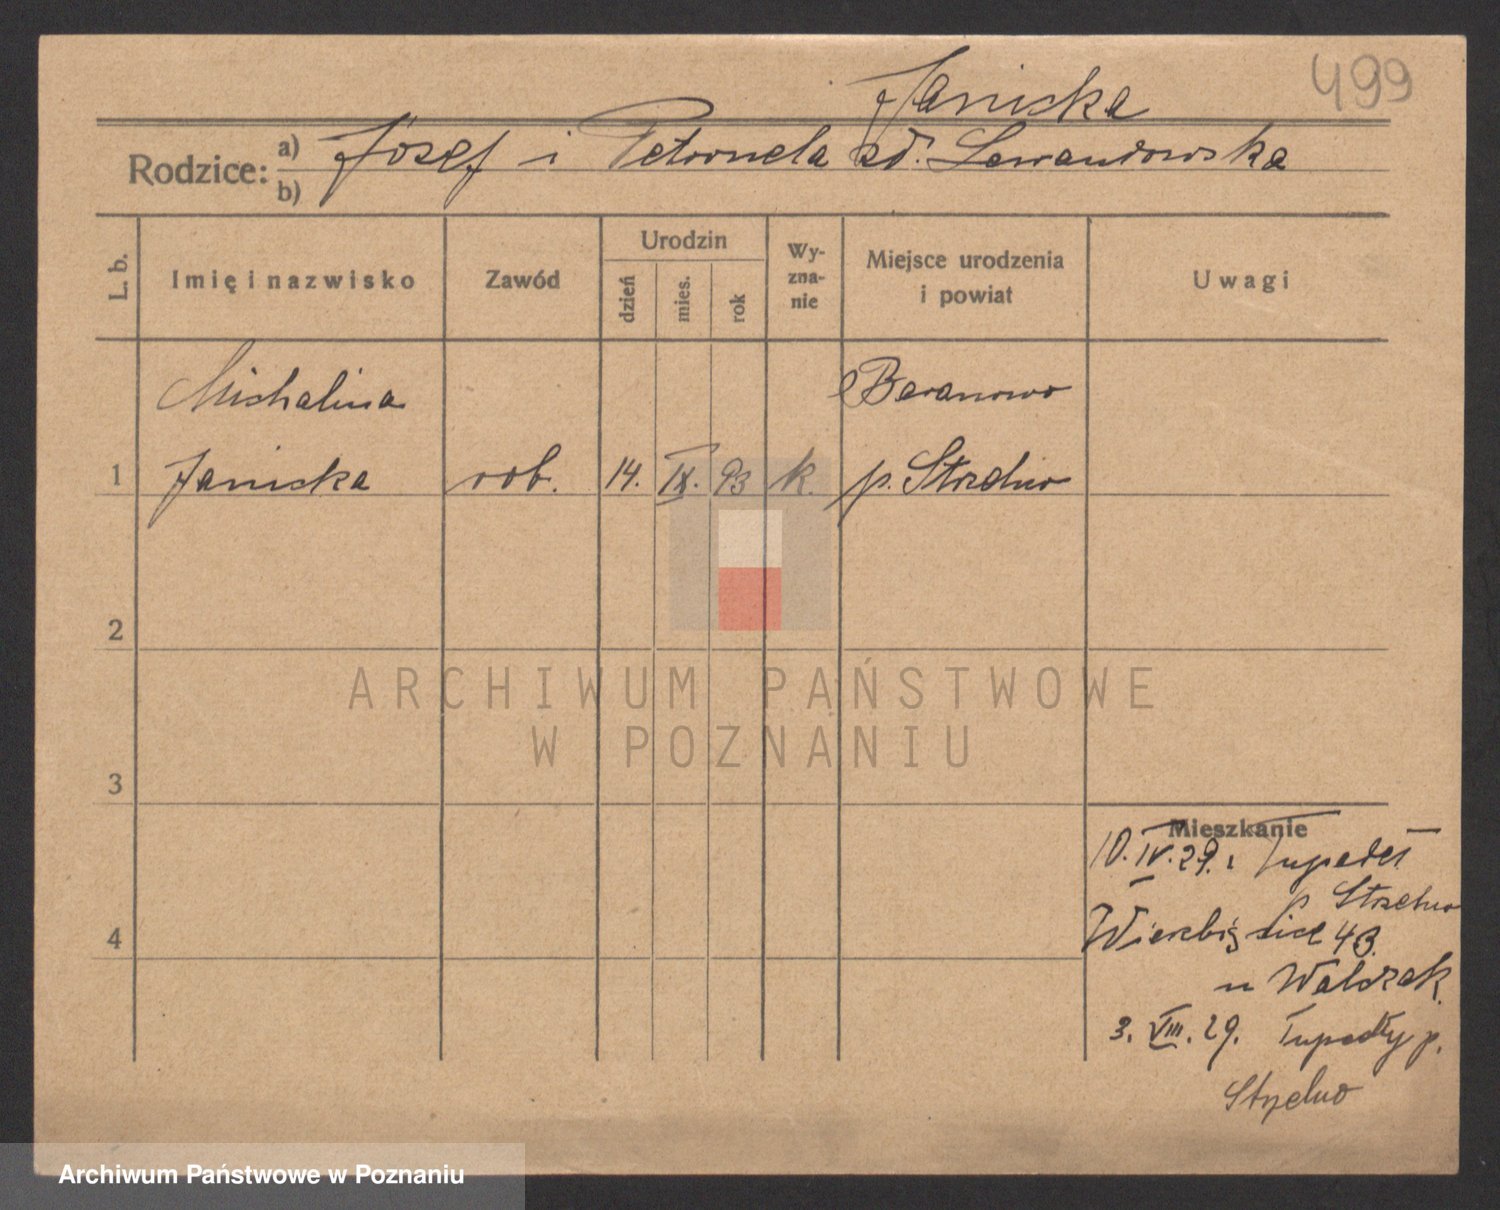 499
Janicka
Rodzice: a) Józef i Petronela zd. Lewandowska
b)
L. b. Imię i nazwisko Zawód Urodzin dzień mies. rok Wyznanie Miejsce urodzenia i powiat Uwagi
Michalina Baranowo
1 Janicka rob. 14. IX. 93 k. p. Strzelno
2
ARCHIWUM PAŃSTWOWE
W POZNANIU
3
Mieszkanie
10. IV. 29. z Tupadeł
p Strzelno
4 Wierzbięcice 43.
u Walczak
3. VIII. 29. Tupadły p.
Strzelno
Archiwum Państwowe w Poznaniu